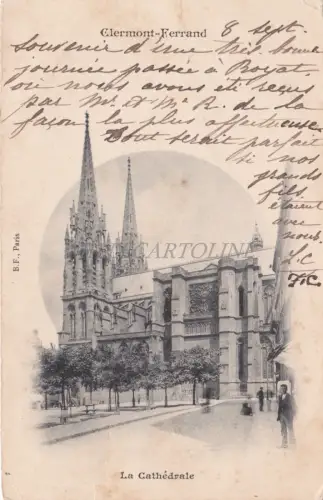 Clermont-Ferrand
8 Sept.
Souvenir d'une très bonne
journée passée à Royat
où nous avons été reçus
par Mr et Me R. de la
façon la plus affectueuse
Tout serait parfait
si nos
grands
fils
étaient
avec
nous.
L.C
B. F., Paris
CARTOLINE
La Cathédrale